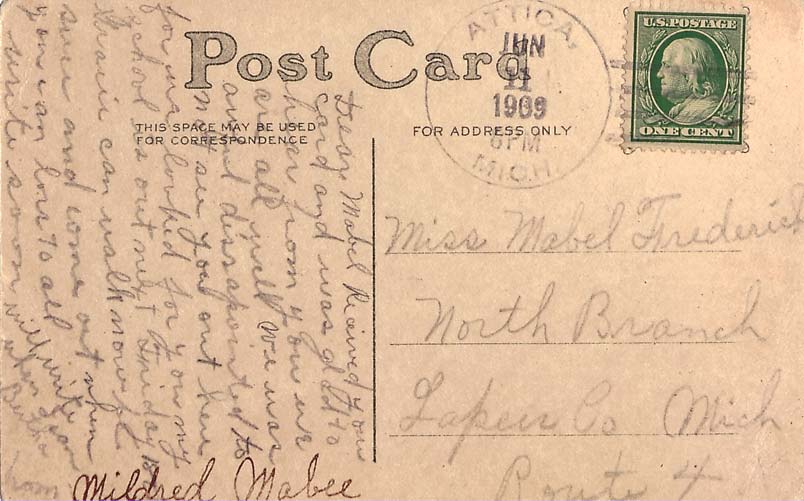 Post Card
THIS SPACE MAY BE USED
FOR CORRESPONDENCE
FOR ADDRESS ONLY
ATTICA,
JUN
11
1909
6PM
MICH.
U.S. POSTAGE
ONE CENT
Dear Mabel Recieved you
card and was glad to
hear from you we
are all well We was
awful dissapointed to
not see you out here
for ma looked for you my
school is out next Friday 18
can walk now
sure and come out when
you can love to all
write soon will write
when
from
Miss Mabel Frederick
North Branch
Lapeer Co Mich
Route 4
Mildred Mabee